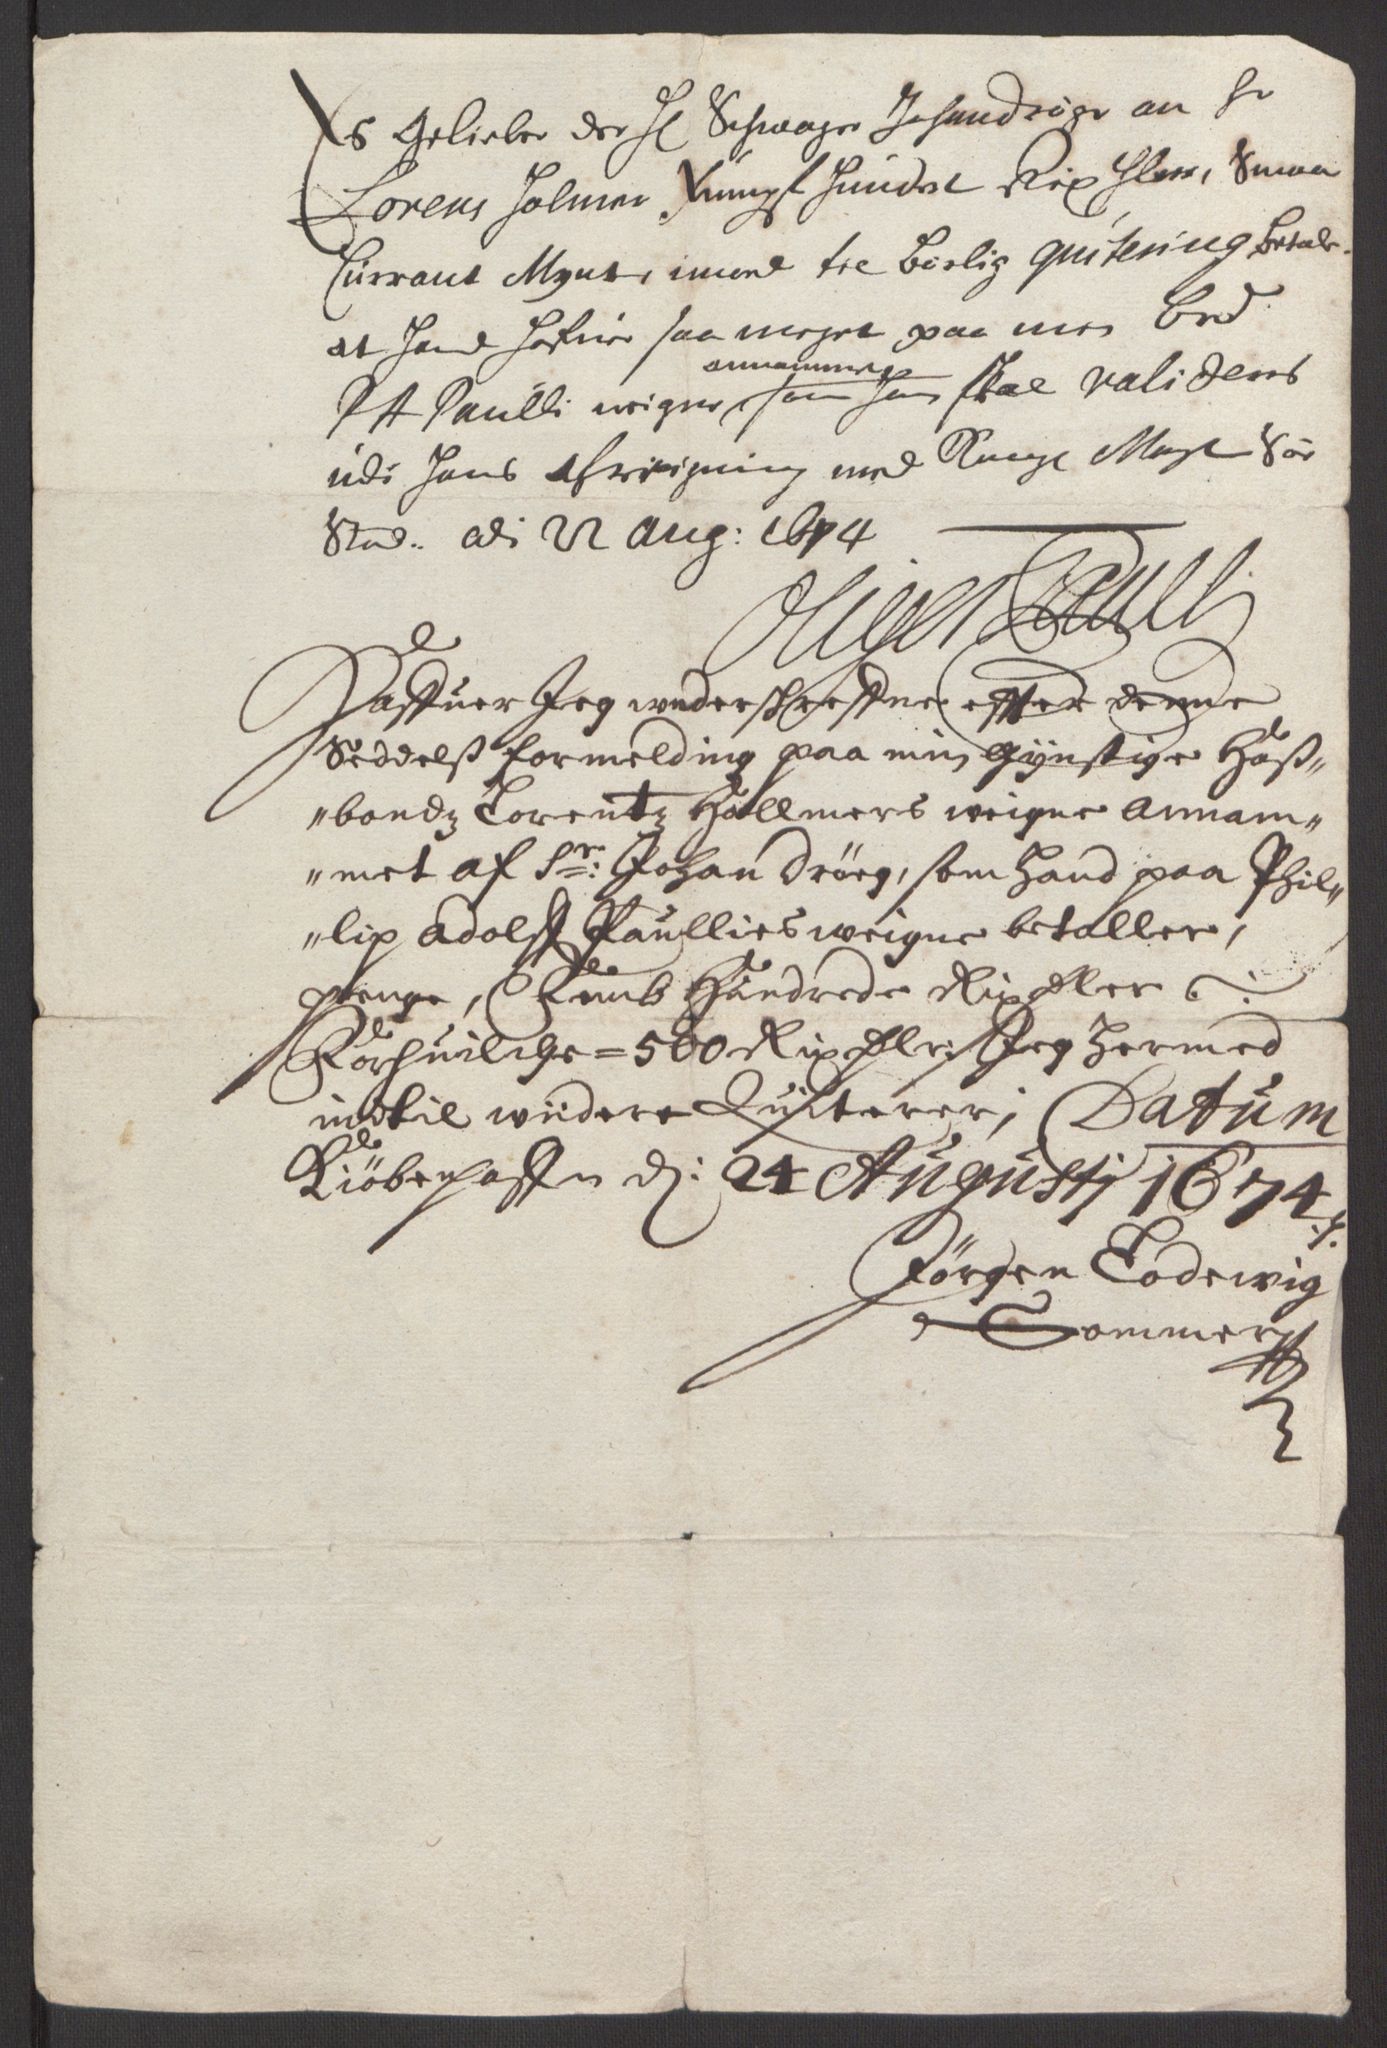 Es geliebe der H Schwager Johan dröge an Sr
Lorens Holmer Fünff hündert Rixdlere, Smaa
Currant Mynt, imod tre börlig quitering betale
at hand hafuer saa meget paa min brod
P A Paulli weigne annammet som ham skal valideres
udi hans afreigning med Kongl Mayt Söe
Stad. adi 22 Aug: 1674
Oliger Paulli
Haffuer Jeg underschreffne effter denne
Seddelß formelding paa min gÿnstige Hoß„
„bondz Lorentz Hollmers weigne annam„
„met af Sr: Johan Dröeg, som hand paa Phil„
„lip Adolff Paullies weigne betaller,
penge, Femb Hundrede Rixdler
For huilche = 500 Rixdlr: Jeg hermed
indtil widere Quiterer; Datum
Kiöbenhaffn d: 24 Augustj 1674
Jörgen Lodewig
Sommer